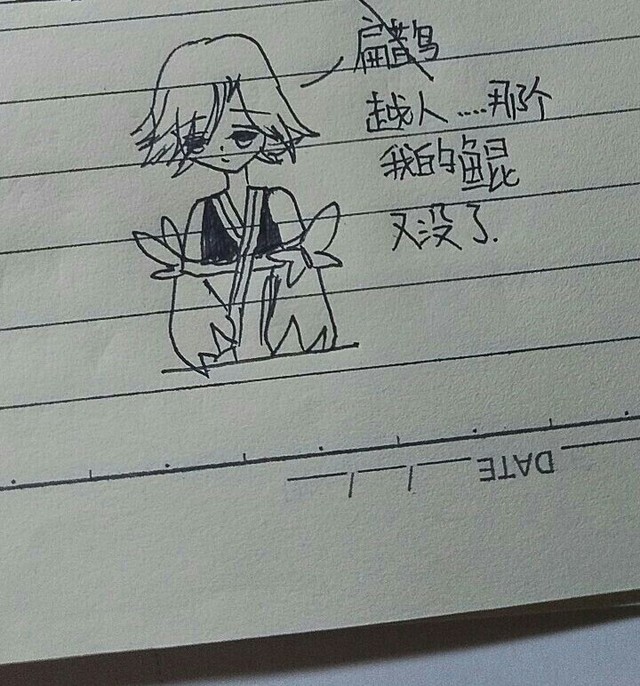 扁鹊
越人.....那个
我的鲲
又没了.
DATE